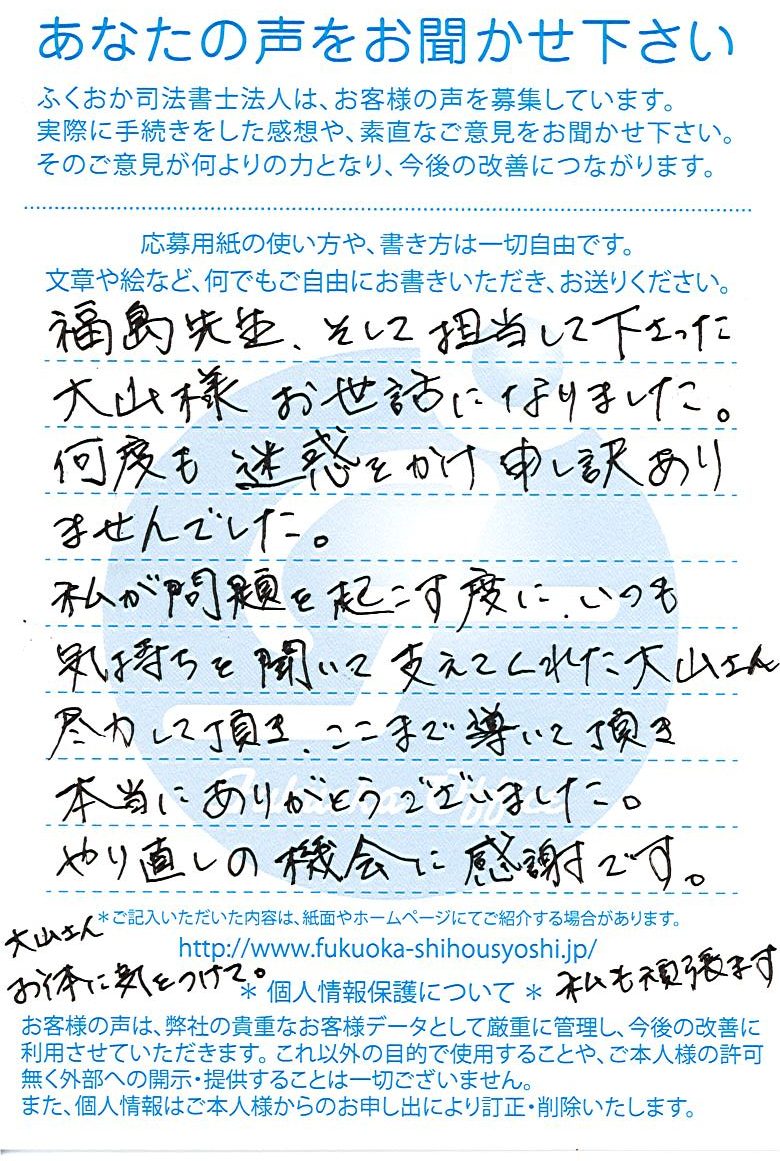 あなたの声をお聞かせ下さい
ふくおか司法書士法人は、お客様の声を募集しています。
実際に手続きをした感想や、素直なご意見をお聞かせ下さい。
そのご意見が何よりの力となり、今後の改善につながります。
応募用紙の使い方や、書き方は一切自由です。
文章や絵など、何でもご自由にお書きいただき、お送りください。
福島先生、そして担当して下さった
大山様 お世話になりました。
何度も 迷惑をかけ 申し訳あり
ませんでした。
私が問題を起こす度に、いつも
気持ちを聞いて支えてくれた大山さん
尽力して頂き、ここまで導いて頂き
本当にありがとうございました。
やり直しの機会に感謝です。
＊ご記入いただいた内容は、紙面やホームページにてご紹介する場合があります。
大山さん
http://www.fukuoka-shihousyoshi.jp/
お体に気をつけて。
＊ 個人情報保護について ＊
私も頑張ます
お客様の声は、弊社の貴重なお客様データとして厳重に管理し、今後の改善に
利用させていただきます。これ以外の目的で使用することや、ご本人様の許可
無く外部への開示・提供することは一切ございません。
また、個人情報はご本人様からのお申し出により訂正・削除いたします。